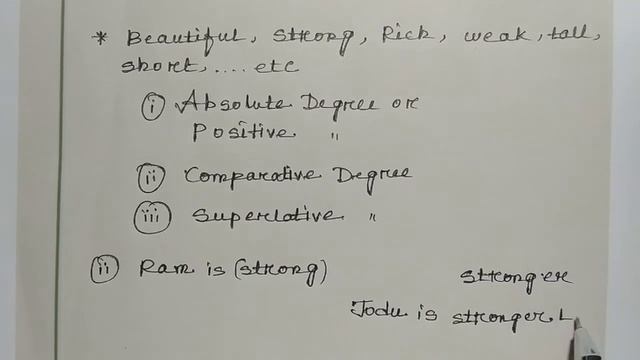 * Beautiful, Strong, Rich, weak, tall,
short, .... etc
(i) Absolute Degree or
Positive "
(ii) Comparative Degree
(iii) Superlative "
(ii) Ram is (strong)
stronger
Jodu is stronger t